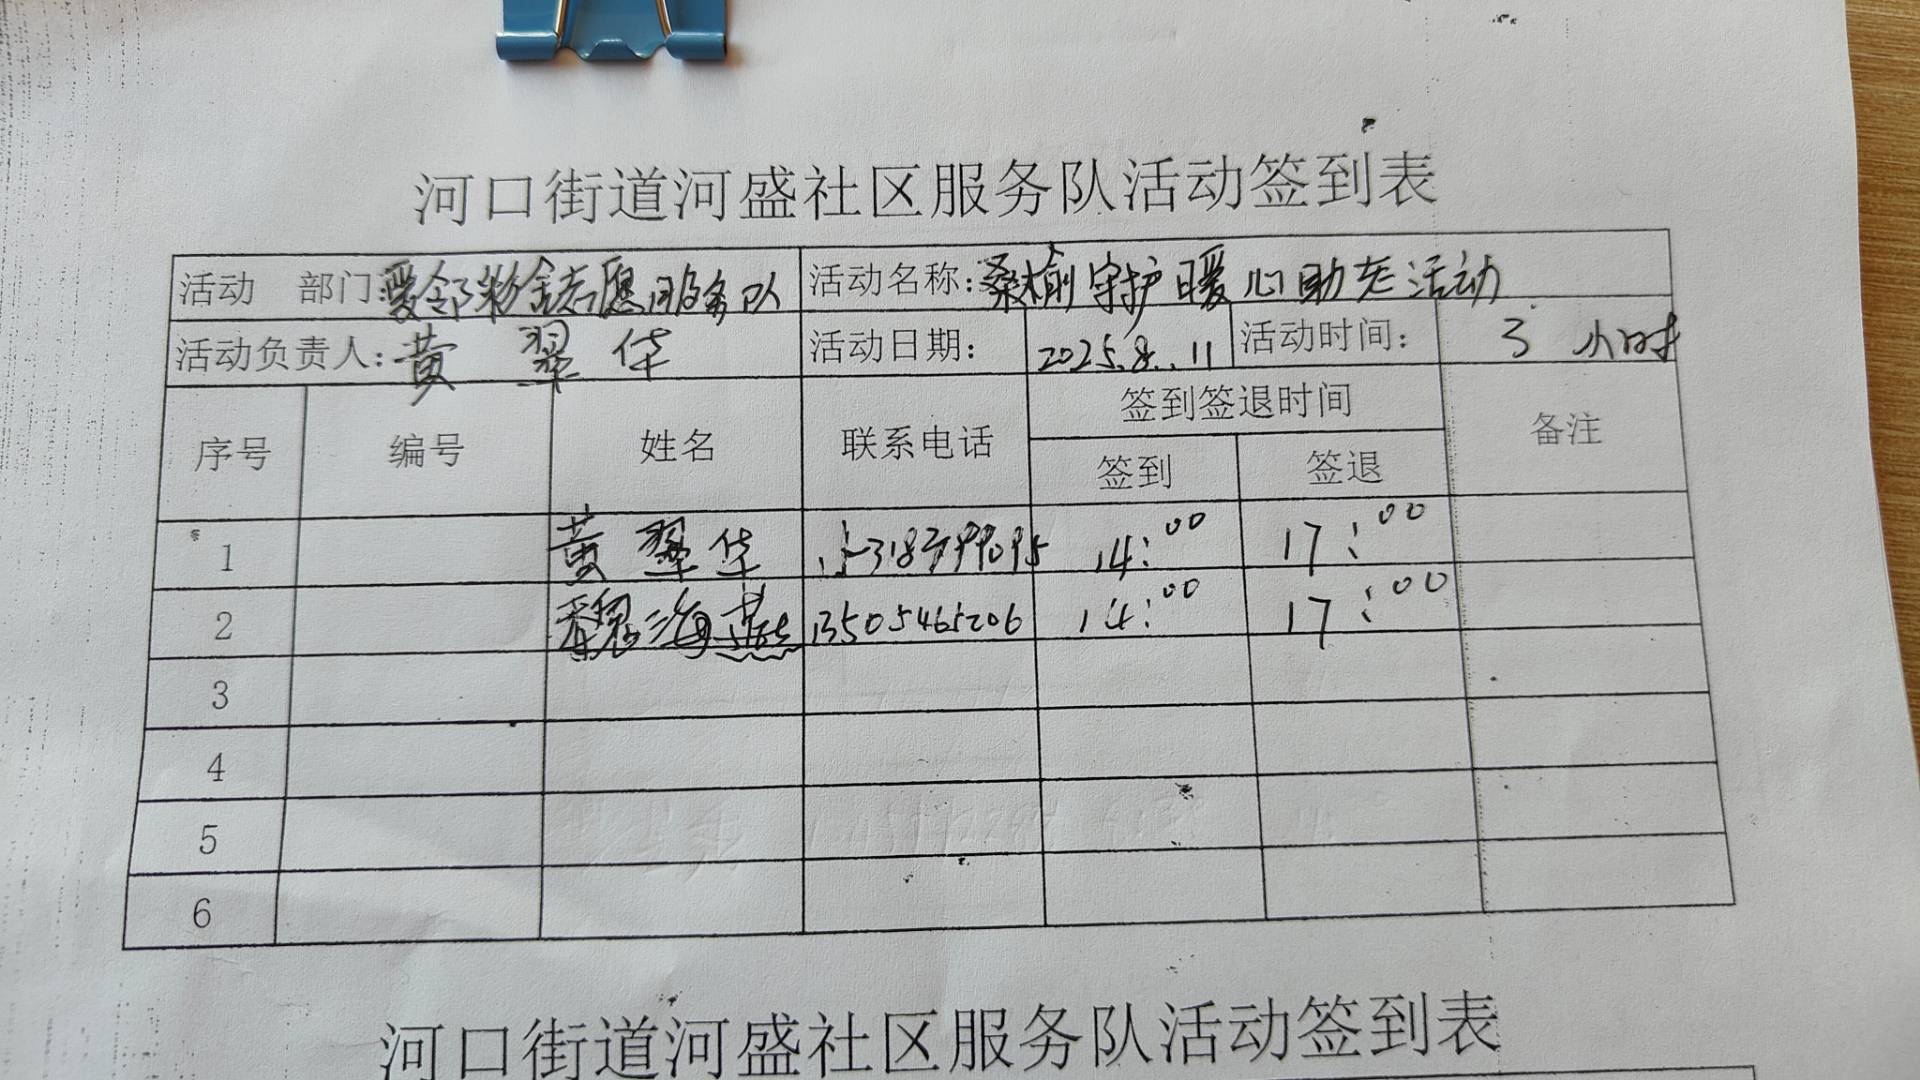 河口街道河盛社区服务队活动签到表
活动 部门:爱邻粉金志愿服务队 活动名称:桑榆守护暖心助老活动
活动负责人:黄翠华 活动日期: 2025.8.11 活动时间: 3 小时
序号 编号 姓名 联系电话 签到签退时间 备注
签到 签退
1 黄翠华 14:00 17:00
2 魏海燕 13505465206 14:00 17:00
3
4
5
6
河口街道河盛社区服务队活动签到表